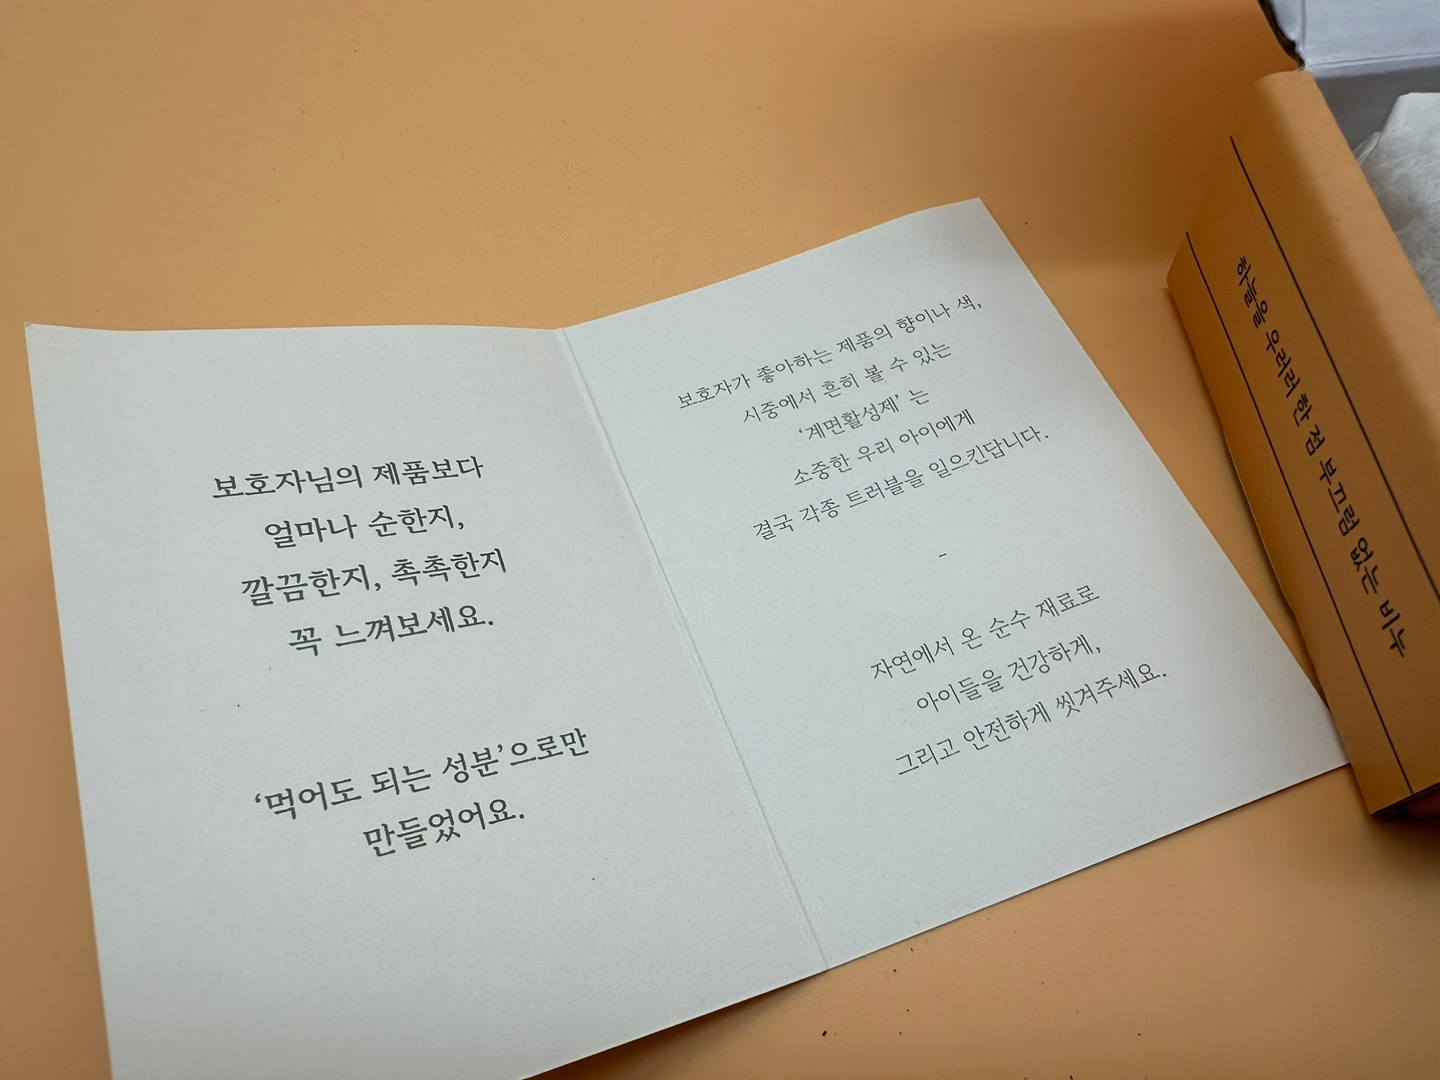 보호자님의 제품보다
얼마나 순한지,
깔끔한지, 촉촉한지
꼭 느껴보세요.
‘먹어도 되는 성분’으로만
만들었어요.
보호자가 좋아하는 제품의 향이나 색,
시중에서 흔히 볼 수 있는
‘계면활성제’ 는
소중한 우리 아이에게
결국 각종 트러블을 일으킨답니다.
-
자연에서 온 순수 재료로
아이들을 건강하게,
그리고 안전하게 씻겨주세요.
하늘을 우러러 한 점 부끄럼 없는 비누